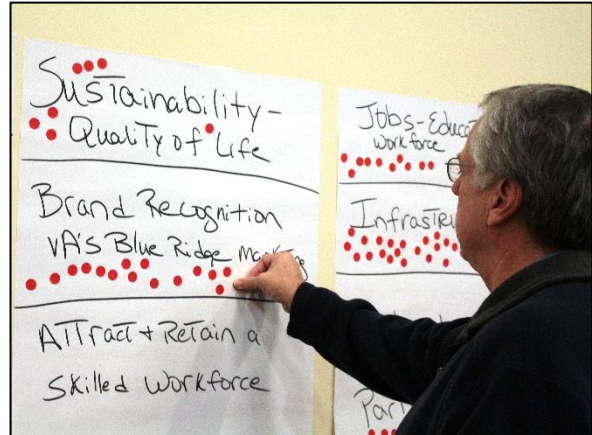 Sustainability -
Quality of Life
Brand Recognition
VA's Blue Ridge Marketing
Attract + Retain a
Skilled Workforce
Jobs - Educat
Workforce
Infrastru
Part